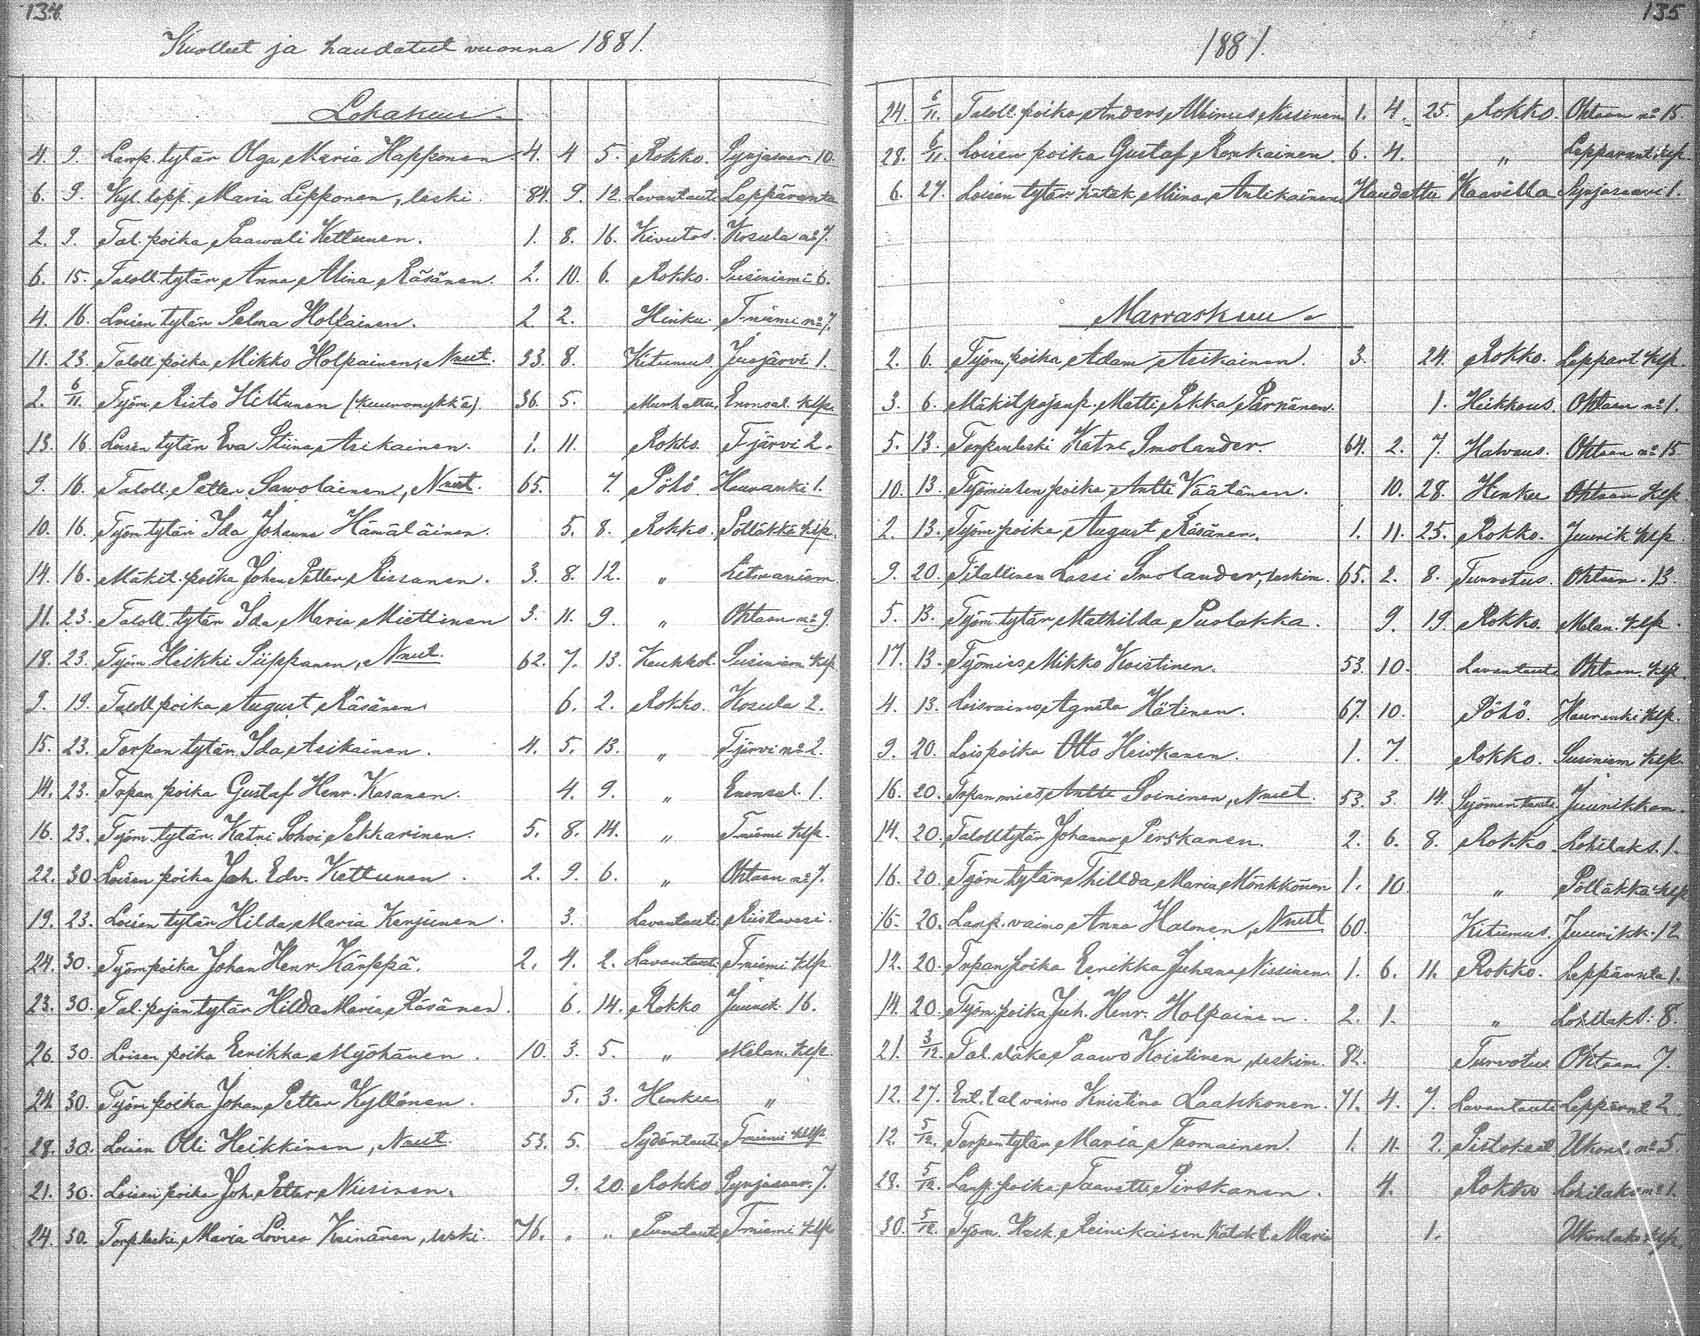 134.
Kuolleet ja haudatut vuonna 1881.
Lokakuu.
4. 9. Lamp. tytär Olga Maria Happonen 4. 4 5. Rokko. Syvjäsaar. 10.
6. 9. Kyl. lopp. Maria Lipponen, leski. 84. 9. 12. Lavantauti Leppäranta
2. 9. Tal. poika Paawali Kettunen. 1. 8. 16. Kivutos. Kosula no 7.
6. 15. Taloll. tytär Anna Alina Räsänen. 2. 10. 6. Rokko. Susiniemi 6.
4. 16. Loisen tytär Selma Holpainen. 2. 2. Hinku. T niemi no 7.
11. 23. Taloll. poika Mikko Holpainen, Nnut. 33. 8. Kitumus Juojärvi 1.
2. 6/11. Työm. Risto Hiltunen (kuuromykkä). 36. 5. Murhattu, Enonsal. klp.
13. 16 Loisen tytär Eva Stiina Asikainen. 1. 11. Rokko. T järvi 2.
9. 16. Taloll. Petter Sawolainen, Nnut. 65. 7. Pöhö Hauranki 1.
10. 16. Työm tytär Ida Johanna Hämäläinen. 5. 8. Rokko. Pölläkkä klp.
14. 16. Mäkit. poika Johan Petter Rissanen. 3. 8. 12. " Litmaniem.
11. 23. Taloll. tytär Ida Maria Miettinen 3. 11. 9. " Ohtaan no 9.
18. 23. Työm. Heikki Siippanen, Nnut. 62. 7. 13. Keuhkot. Susiniem klp.
9. 19. Taloll. poika August Räsänen 6. 2. Rokko. Kosula 2.
15. 23. Torpan tytär Ida Asikainen. 4. 5. 13. " Tjärvi no 2.
14. 23. Trpan poika Gustaf Henr. Kasanen. 4. 9. " Enonsal. 1.
16. 23. Työm tytär Katri Sohvi Pekkarinen. 5. 8. 14. " T niemi klp.
22. 30 Loisen poika Joh. Edv. Kettunen. 2. 9. 6. " Ohtaan no 7.
19. 23. Loisen tytär Hilda Maria Kerjinen. 3. Lavantauti Riistavesi.
24. 30. Työm poika Johan Henr. Kärppä. 2. 4. 2. Lavantauti T niemi klp
23. 30. Tal. pojan tytär Hilda Maria Räsänen. 6. 14. Rokko Juurik. 16.
26. 30. Loisen poika Eerikka Myöhänen. 10. 3. 5. " Melan. klp.
24. 30. Työm poika Johan Petter Kyllönen. 5. 3. Hinku "
28. 30. Loisen Olli Heikkinen, Nnut. 53. 5. Sydäntauti T niemi klp
21. 30. Loisen poika Joh. Peter Nissinen. 9. 20. Rokko Syvjäsaar. 7.
24. 30. Torp leski Maria Lovisa Keinänen, leski. 76. " " Punatauti T niemi klp
135
1881.
24. 6/11. Taloll. poika Anders Albinus Nissinen 1. 4. 25. Rokko. Ohtaan no 15.
28. 6/11. Loisen poika Gustaf Ronkainen. 6. 4. " Lepparant. klp.
6. 27. Loisen tytär hätäk. Miina Antikainen Haudattu Kaavilla Syvjäsaari 1.
Marraskuu
2. 6. Työm. poika Adam Asikainen. 3. 24. Rokko. Leppärt. klp.
3. 6. Mäkit pojanp. Matti Pekka Pärnänen. 1. Heikkous. Ohtaan no 1.
5. 13. Torpanleski Katri Smolander. 64. 2. 7. Halvaus. Ohtaan no 15.
10. 13. Työmiesten poika Antti Väätänen. 10. 28. Hinku Ohtaan klp.
2. 13. Työm poika August Räsänen. 1. 11. 25. Rokko. Juurik. klp.
9. 20. Tilallinen Lassi Smolander, leskim. 65. 2. 8. Turvotus. Ohtaan. 13.
5. 13. Työm. tytär Mathilda Puolakka. 9. 19. Rokko. Melan. klp.
17. 13. Työmies Mikko Koistinen. 53. 10. Lavantauti Ohtaan. klp.
4. 13. Loisvaimo Agneta Hätinen. 67. 10. Pöhö. Hauranki klp.
9. 20. Loispoika Otto Heiskanen. 1. 7. Rokko. Susiniem klp.
16. 20. Trpanmies Antti Soininen, Nnut. 53. 3. 14. Juurikkam.
14. 20. Taloll tytär Johanna Pirskanen. 2. 6. 8. Rokko Lohilaks. 1.
16. 20. Työm tytär Thillda Maria Mönkkönen 1. 10. " Pölläkkä klp
15. 20. Lamp. vaimo Anna Halonen, Nnut 60. Kitumus. Juurikk. 12
12. 20. Trpan poika Eerikka Juhana Nissinen 1. 6. 11. Rokko. Leppärnta 1.
14. 20. Työm. poika Joh. Henr. Holpainen. 2. 1. " Lohilaks. 8.
21. 3/12. Tal. Paavo Koistinen, leskim. 82. Turvotus. Ohtaan 7.
12. 27. Ent. tal. vaimo Kristina Laakkonen. 71. 4. 7. Lavantauti Leppärnt 2.
12. 5/12. Torpan tytär Maria Tuomainen. 1. 11. 2. Pistokset Ukonl. no 5.
28. 5/12. Lamp. poika Taavetti Pirskanen. 4. Rokko Lohilaks no 1.
30. 5/12. Työm. Heik. Reinikaisen hätäk t. Maria 1. Ukonlaks klp.